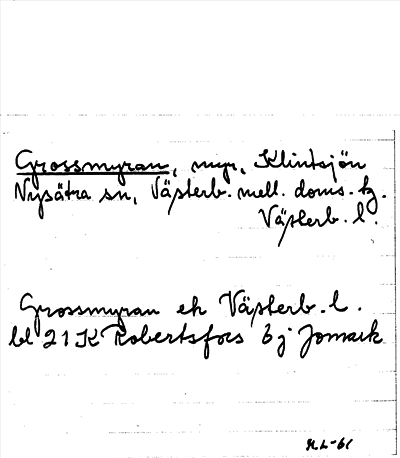 Grossmyran, myr, Klintsjön
Nysätra sn, Västerb. mell. doms. tg.
Västerb. l.
Grossmyran ek Västerb. l.
bl 21 K Robertsfors 6 j Jomark